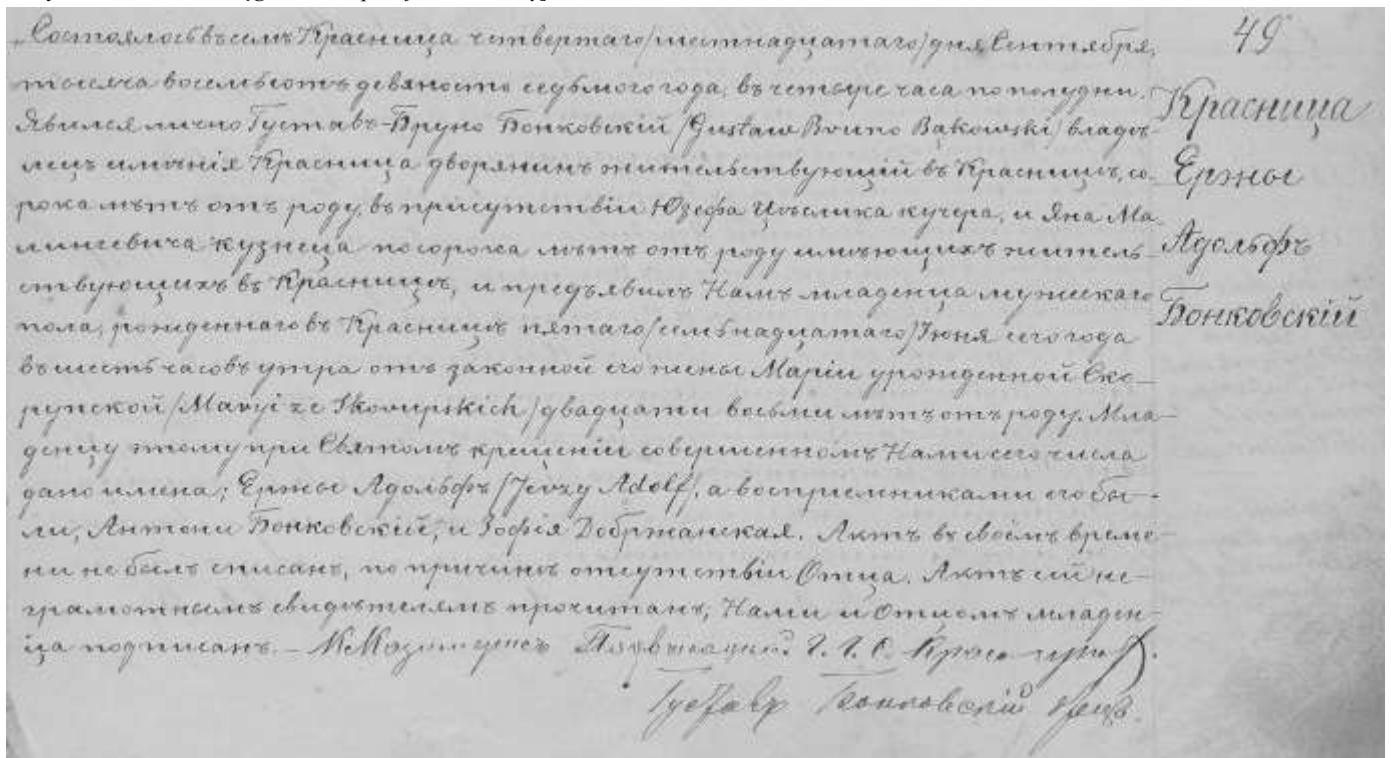 Состоялось въ семъ Красница четвертаго /шестнадцатаго/ дня Сентября,
тысяча восемьсотъ девяносто седьмого года, въ четыре часа пополудни.
Явился лично Густавъ-Бруно Бонковскій /Gustaw Bruno Bąkowski/ владѣ-
лецъ имѣнія Красница дворянинъ жительствующій въ Красницѣ, со-
рока лѣтъ отъ роду, въ присутствіи Юзефа Цѣслика кучера, и Яна Ма-
линсевича кузнеца по сорока лѣтъ отъ роду имѣющихъ жительствующихъ
ствующихъ въ Красницѣ, и предъявилъ Намъ младенца мужескаго
пола, рожденнаго въ Красницѣ пятаго /семьнадцатаго/ Іюня сего года
въ шесть часовъ утра отъ законной его жены Маріи урожденной Ско-
рупской /Maryi ze Skorupskich/ двадцати восьми лѣтъ отъ роду. Мла-
денцу этому при Святомъ крещеніи совершенномъ Нами сего числа
дано имена; Ержы Адольфъ /Jerzy Adolf/, а воспріемниками его бы-
ли, Антони Бонковскій, и Зофія Добржанская. Актъ въ своёмъ време-
ни не былъ списанъ, по причинѣ отсутствіи Отца. Актъ сей не-
грамотнымъ свидѣтелямъ прочитанъ, Нами и Отцомъ младен-
ца подписанъ. –
Густавъ Бонковскій отецъ.
49
Красница
Ержы
Адольфъ
Бонковскій